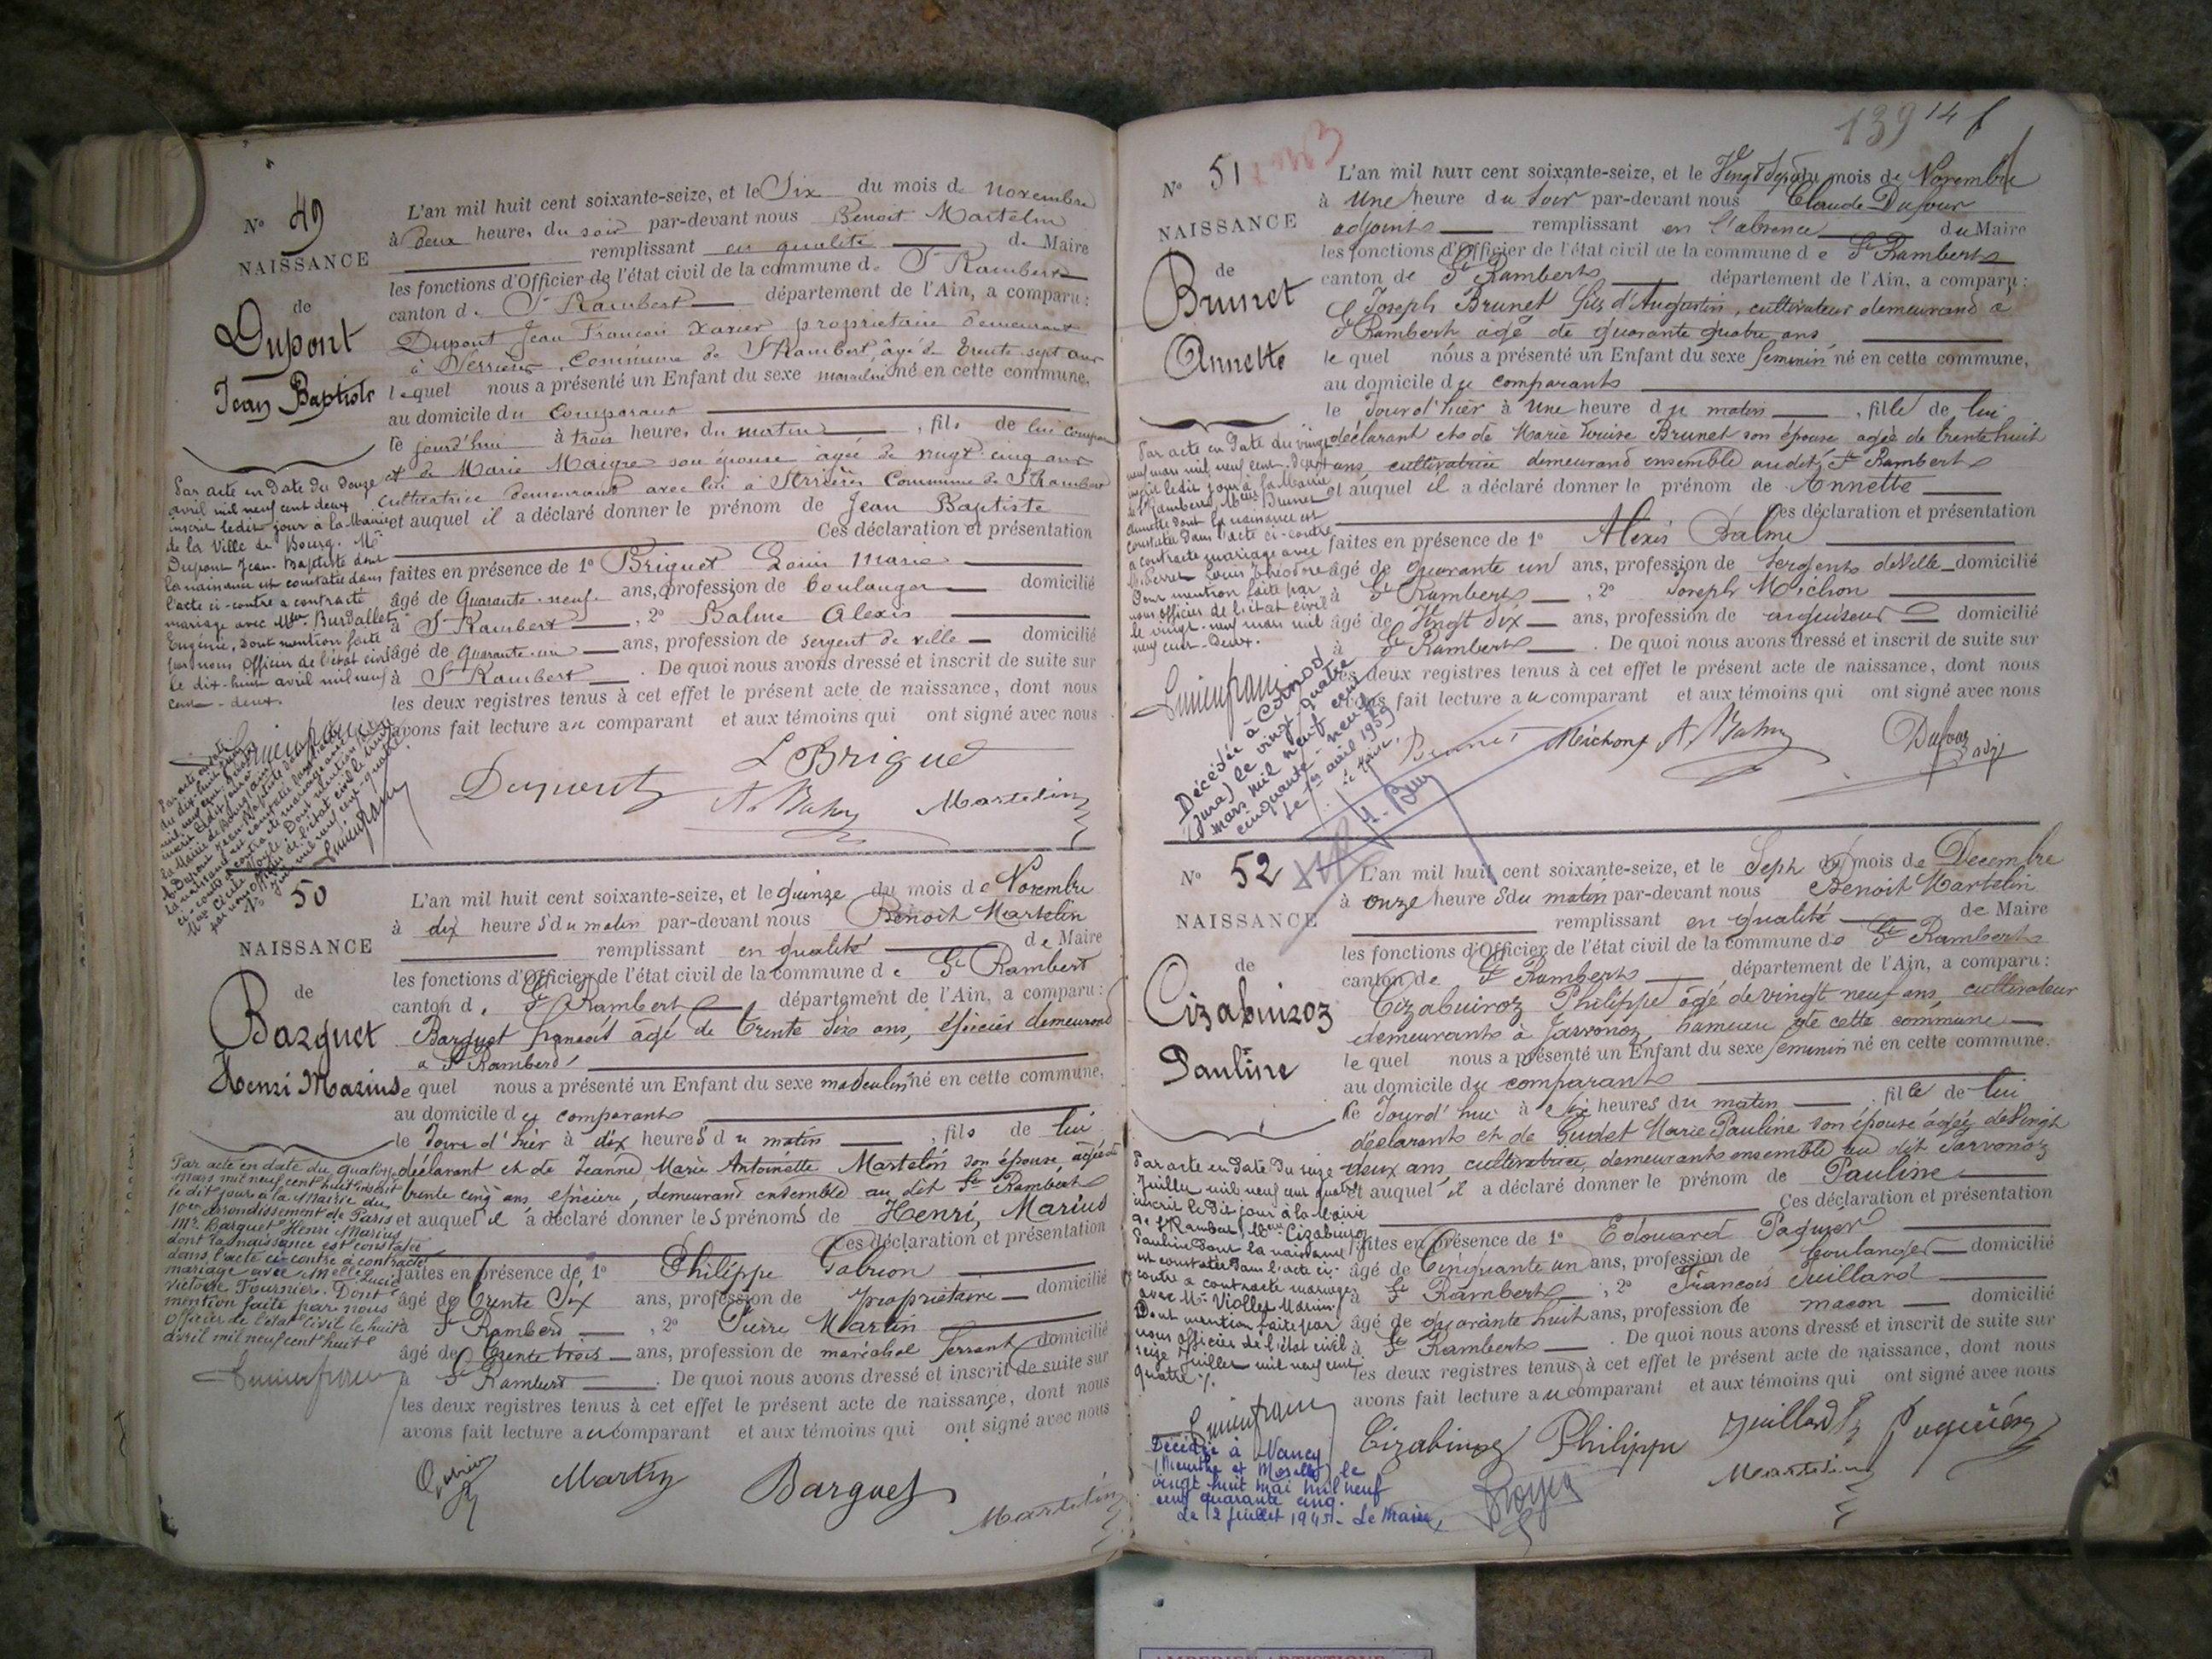 N° 49
NAISSANCE
de
Dupont
Jean Baptiste
L'an mil huit cent soixante-seize, et le Six du mois de Novembre
à deux heures du soir par-devant nous Benoit Martelin
remplissant en qualité de Maire
les fonctions d'Officier de l'état civil de la commune de St Rambert
canton de St Rambert département de l'Ain, a comparu :
Dupont Jean François Xavier propriétaire demeurant
à Serrières, Commune de St Rambert, âgé de trente-sept ans
lequel nous a présenté un Enfant du sexe masculin né en cette commune,
au domicile du Comparant
le jourd'hui à trois heures du matin, fils de lui
et de Marie Maigre son épouse âgée de vingt cinq ans
cultivatrice demeurant avec lui à Serrières Commune de St Rambert
et auquel il a déclaré donner le prénom de Jean Baptiste
Ces déclaration et présentation
faites en présence de 1° Briguet Louis Marie
âgé de Quarante-neuf ans, profession de boulanger domicilié
à St Rambert, 2° Balme Alexis
âgé de Quarante-un ans, profession de sergent de ville domicilié
à St Rambert. De quoi nous avons dressé et inscrit de suite sur
les deux registres tenus à cet effet le présent acte de naissance, dont nous
avons fait lecture au comparant et aux témoins qui ont signé avec nous
Par acte en date du douze
avril mil neuf cent deux
inscrit ledit jour à la Mairie
de la Ville de Bourg. Mr
Dupont Jean-Baptiste dont
la naissance est constatée dans
l'acte ci-contre a contracté
mariage avec Burdallet
Eugénie, Dont mention faite
par nous Officier de l'état civil
le dix-huit avril mil neuf
cent-deux.
Dupont
L Briguet
Martelin
N° 50
NAISSANCE
de
Barguet
Henri Marius
L'an mil huit cent soixante-seize, et le quinze du mois de Novembre
à dix heures du matin par-devant nous Benoit Martelin
remplissant en qualité de Maire
les fonctions d'Officier de l'état civil de la commune de St Rambert
canton de St Rambert département de l'Ain, a comparu :
Barguet françois âgé de trente six ans, épicier demeurant
à St Rambert
lequel nous a présenté un Enfant du sexe masculin né en cette commune,
au domicile du comparants
le Jour d'hier à dix heures du matin, fils de lui
déclarant et de Jeanne Marie Antoinette Martelin son épouse, âgée de
trente cinq ans épicière, demeurand ensemble au dit St Rambert
et auquel il a déclaré donner les prénoms de Henri, Marius
Ces déclaration et présentation
faites en présence de 1° Philippe Gabrion
âgé de Trente Six ans, profession de propriétaire domicilié
à St Rambert, 2° Pierre Martin
âgé de Trente trois ans, profession de maréchal ferrant domicilié
à St Rambert. De quoi nous avons dressé et inscrit de suite sur
les deux registres tenus à cet effet le présent acte de naissance, dont nous
avons fait lecture au comparant et aux témoins qui ont signé avec nous
Par acte en date du quatorze
mars mil neuf cent huit inscrit
le dit jour à la Mairie du
10me arrondissement de Paris
Mr Barguet Henri Marius
dont la naissance est constatée
dans l'acte ci-contre à contracté
mariage avec Melle Lucie
Victoire Fournier. Dont
mention faite par nous
Officier de l'état Civil le huit
avril mil neuf cent huit
Martin
Barguet
Martelin
139
N° 51
NAISSANCE
de
Brunet
Annette
L'an mil huit cent soixante-seize, et le Vingt Sept du mois de Novembre
à Une heure du Soir par-devant nous Claude Dufour
adjoints remplissant en l'absence du Maire
les fonctions d'Officier de l'état civil de la commune de St Ramberts
canton de St Ramberts département de l'Ain, a comparu :
Joseph Brunet fils d'Augustin, cultivateur demeurand a
St Rambert âgé de quarante quatre ans
le quel nous a présenté un Enfant du sexe feminin né en cette commune,
au domicile du comparants
le Jour d'hier à Une heure du matin, fille de lui
déclarant et de Marie Louise Brunet son épouse agée de trente huit
ans, cultivatrice demeurand ensemble audit St Ramberts
et auquel il a déclaré donner le prénom de Annette
Ces déclaration et présentation
faites en présence de 1° Alexis Balme
âgé de quarante un ans, profession de Sergents de Ville domicilié
à St Ramberts, 2° Joseph Michon
âgé de Vingt Six ans, profession de aiguiseur domicilié
à St Ramberts. De quoi nous avons dressé et inscrit de suite sur
les deux registres tenus à cet effet le présent acte de naissance, dont nous
avons fait lecture au comparant et aux témoins qui ont signé avec nous
Par acte en date du vingt
neuf mars mil neuf cent-deux
inscrit ledit jour à la Mairie
de St Rambert, Melle Brunet
Annette dont la naissance est
constatée dans l'acte ci-contre
a contracté mariage avec
Louis Théodore
Dont mention faite par
nous officier de l'état civil
le vingt-neuf mars mil
neuf cent-deux.
Décédée à
(Jura) le vingt quatre
mars mil neuf cent
cinquante-neuf
Le 1er avril 1959
Le Maire,
Brunet
Michon
Dufour adj
N° 52
NAISSANCE
de
Cizabuiroz
Pauline
L'an mil huit cent soixante-seize, et le Sept du mois de Decembre
à onze heures du matin par-devant nous Benoit Martelin
remplissant en qualité de Maire
les fonctions d'Officier de l'état civil de la commune de St Ramberts
canton de St Ramberts département de l'Ain, a comparu :
Cizabuiroz Philippe âgé de vingt neuf ans, cultivateur
demeurants à Javornoz, hameau de cette commune
le quel nous a présenté un Enfant du sexe feminin né en cette commune.
au domicile du comparants
le Jourd'hui à Six heures du matin, fille de lui
déclarants et de Gudet Marie Pauline son épouse agée de Vingt
deux ans, cultivatrice, demeurants ensemble au dit Javornoz
et auquel il a déclaré donner le prénom de Pauline
Ces déclaration et présentation
faites en présence de 1° Edouard Paguier
âgé de Cinquante un ans, profession de boulanger domicilié
à St Ramberts, 2° François Juillard
âgé de quarante huit ans, profession de macon domicilié
à St Ramberts. De quoi nous avons dressé et inscrit de suite sur
les deux registres tenus à cet effet le présent acte de naissance, dont nous
avons fait lecture au comparant et aux témoins qui ont signé avec nous
Par acte en date du seize
Juillet mil neuf cent quatre
inscrit le dit jour à la Mairie
de St Rambert, Melle Cizabuiroz
Pauline dont la naissance
est constatée dans l'acte ci-
contre a contracté mariage
avec Mr Viollet Marius.
Dont mention faite par
nous officier de l'état civil
seize Juillet mil neuf cent
quatre
Décédée à Nancy
(Meurthe et Moselle) le
vingt huit mai mil neuf
cent quarante cinq.
Le 12 juillet 1945. Le Maire,
Cizabuiroz Philippe
Juillard
Martelin
AMBERIEU ARTISTIQUE